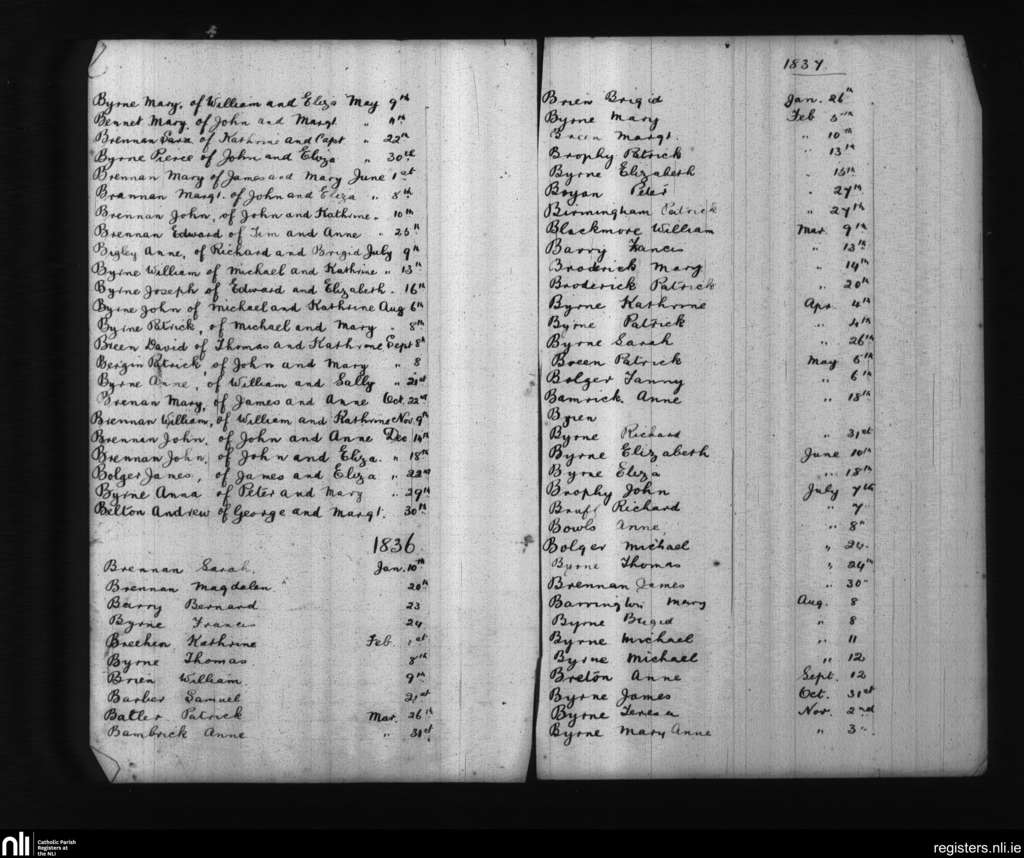 Byrne Mary, of William and Eliza May 9th
Bennet Mary of John and Margt " 9th
Brennan Sara of Kathrine and Capt " 22nd
Byrne Pierce of John and Eliza " 30th
Brennan Mary of James and Mary June 1st
Brannan Margt. of John and Eliza " 8th
Brennan John, of John and Kathrine " 10th
Brennan Edward of Tim and Anne " 25th
Begley Anne, of Richard and Brigid July 9th
Byrne William of Michael and Kathrine " 13th
Byrne Joseph of Edward and Elizabeth . 16th
Byrne John of Michael and Kathrine Aug 6th
Byrne Patrick, of Michael and Mary " 8th
Breen David of Thomas and Kathrine Sept 8th
Bergin Patrick, of John and Mary " 8
Byrne Anne, of William and Sally " 21st
Mary, of James and Anne Oct. 22nd
Brennan William, of William and Kathrine Nov. 9th
Brennan John, of John and Anne Dec 14th
Brennan John, of John and Eliza. " 18th
Bolger James, of James and Eliza " 22nd
Byrne Anna of Peter and Mary " 29th
Belton Andrew of George and Margt. 30th
1836
Brennan Sarah. Jan. 10th
Brennan Magdalen 20th
Barry Bernard 23
Byrne Francis 24
Breehen Kathrine Feb. 1st
Byrne Thomas 8th
Brien William 9th
Barber Samuel 21st
Batler Patrick Mar. 26th
Bambrick Anne " 31st
1837
Brien Brigid Jan. 26th
Byrne Mary Feb 5th
Breen Margt. " 10th
Brophy Patrick " 13th
Byrne Elizabeth " 15th
Bryan Peter " 27th
Birmingham Patrick " 27th
Blackmore William Mar. 9th
Barry Francis " 13th
Broderick Mary " 14th
Broderick Patrick " 20th
Byrne Kathrine Apr. 4th
Byrne Patrick " 4th
Byrne Sarah " 26th
Breen Patrick May 6th
Bolger Fanny " 6th
Bamrick Anne " 18th
Byren
Byrne Richard " 31st
Byrne Elizabeth June 10th
Byrne Eliza " 18th
Brophy John July 7th
Bruff Richard " 7
Bowls Anne " 8th
Bolger Michael " 24
Byrne Thomas " 24th
Brennan James " 30
Barrington Mary Aug. 8
Byrne Brigid " 8
Byrne Michael " 11
Byrne Michael " 12
Breton Anne Sept. 12
Byrne James Oct. 31st
Byrne Teresa Nov. 2nd
Byrne Mary Anne " 3
nli Catholic Parish
Registers at
the NLI
registers.nli.ie